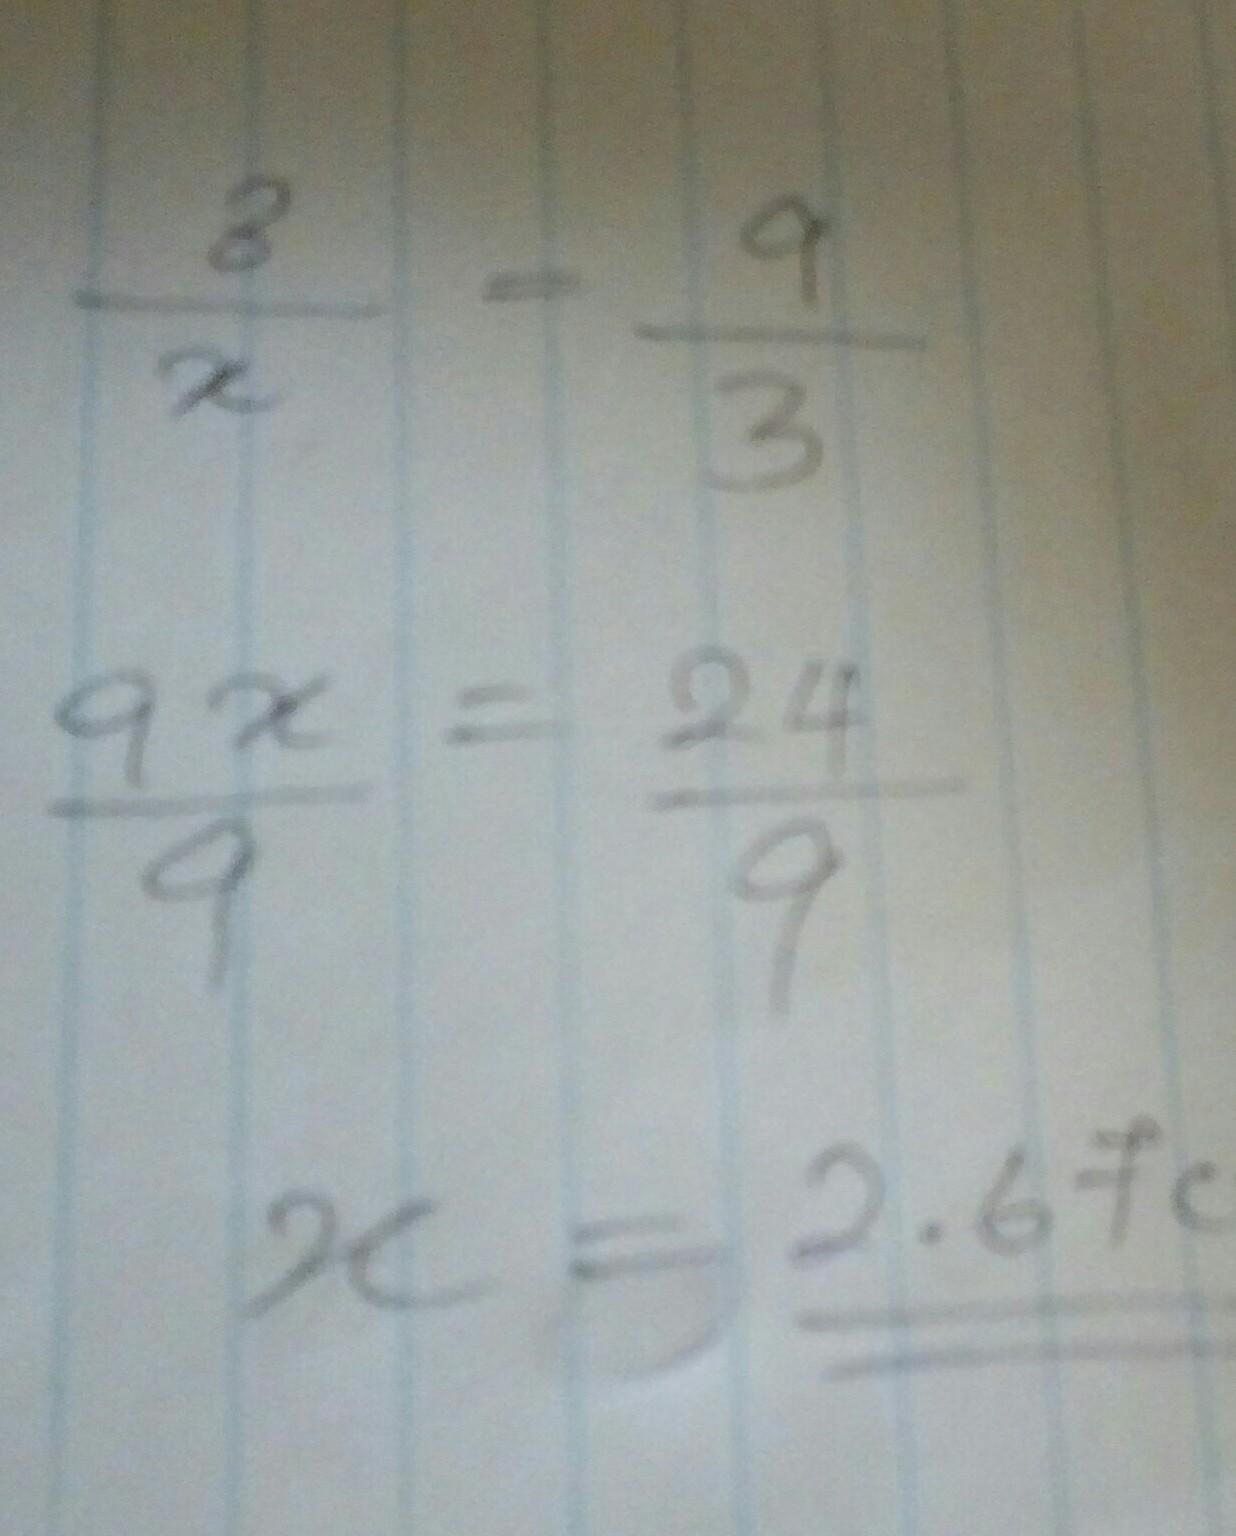 8/x = 9/3
9x/9 = 24/9
x = 2.67c